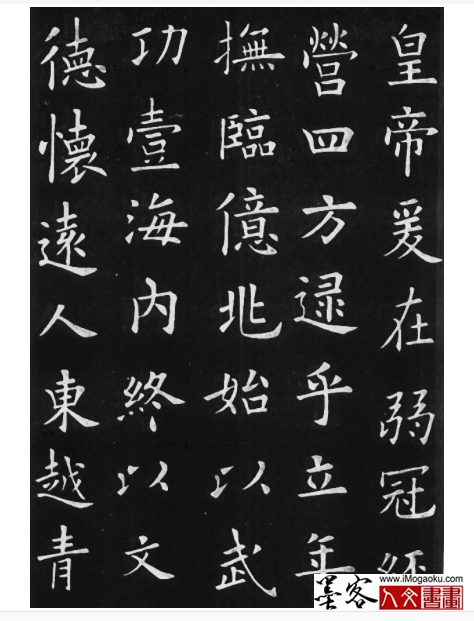 皇帝爰在弱冠經
營四方逯乎立年
撫臨億兆始以武
功壹海內終以文
德懷遠人東越青
墨客
www.iMogaoku.com
人文書畫